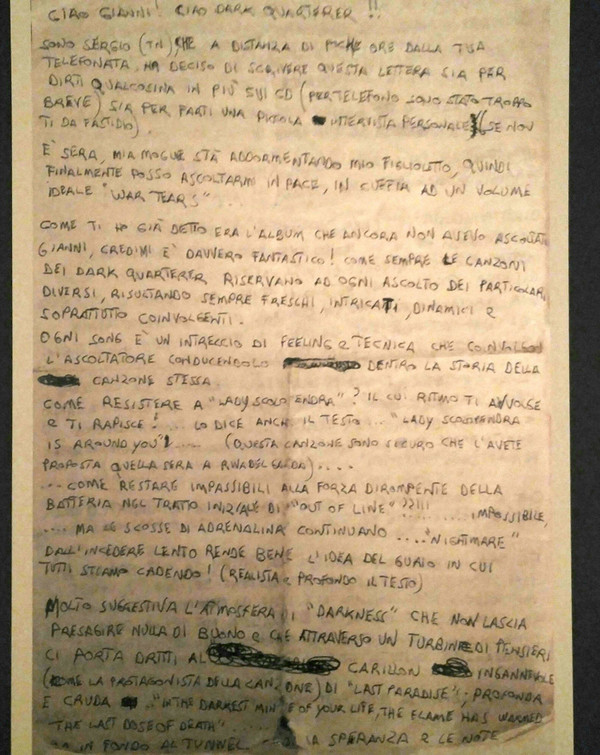 CIAO GIANNI! CIAO DARK QUARTERER!!
SONO SERGIO (TN), CHE A DISTANZA DI POCHE ORE DALLA TUA
TELEFONATA HA DECISO DI SCRIVERE QUESTA LETTERA SIA PER
DIRTI QUALCOSINA IN PIÙ SUI CD (PER TELEFONO SONO STATO TROPPO
BREVE) SIA PER FARTI UNA PICCOLA INTERVISTA PERSONALE (SE NON
TI DA FASTIDIO).
E' SERA, MIA MOGLIE STÀ ADDORMENTANDO MIO FIGLIOLETTO, QUINDI
FINALMENTE POSSO ASCOLTARMI IN PACE, IN CUFFIA AD UN VOLUME
IDEALE "WAR TEARS"
COME TI HO GIÀ DETTO ERA L'ALBUM CHE ANCORA NON AVEVO ASCOLTATO
GIANNI, CREDIMI E' DAVVERO FANTASTICO! COME SEMPRE LE CANZONI
DEI DARK QUARTERER RISERVANO AD OGNI ASCOLTO DEI PARTICOLARI
DIVERSI, RISULTANDO SEMPRE FRESCHI, INTRICATI, DINAMICI E
SOPRATTUTTO COINVOLGENTI.
OGNI SONG E' UN INTRECCIO DI FEELING E TECNICA CHE COINVOLGONO
L'ASCOLTATORE CONDUCENDOLO DENTRO LA STORIA DELLA
CANZONE STESSA
COME RESISTERE A "LADY SCOLOPENDRA"? IL CUI RITMO TI AVVOLGE
E TI RAPISCE! ... LO DICE ANCHE IL TESTO ... "LADY SCOLOPENDRA
IS AROUND YOU"! .... (QUESTA CANZONE SONO SICURO CHE L'AVETE
PROPOSTA QUELLA SERA A RIVA DEL GARDA) ....
... COME RESTARE IMPASSIBILI ALLA FORZA DIROMPENTE DELLA
BATTERIA NEL TRATTO INIZIALE DI "OUT OF LINE"??!!! ........ IMPOSSIBILE,
.... MA LE SCOSSE DI ADRENALINA CONTINUANO .... "NIGHTMARE"
DALL'INCEDERE LENTO RENDE BENE L'IDEA DEL BURIO IN CUI
TUTTI STIAMO CADENDO! (REALISTA E PROFONDO IL TESTO)
MOLTO SUGGESTIVA L'ATMOSFERA DI "DARKNESS" CHE NON LASCIA
PRESAGIRE NULLA DI BUONO E CHE ATTRAVERSO UN TURBINE DI PENSIERI
CI PORTA DRITTI AL CARILLON INGANNEVOLE
(COME LA PROTAGONISTA DELLA CANZONE) DI "LAST PARADISE"; PROFONDA
E CRUDA "IN THE DARKEST MINUTE OF YOUR LIFE, THE FLAME HAS WARMED
THE LAST DOSE OF DEATH"
IN FONDO AL TUNNEL LA SPERANZA E LE NOTE